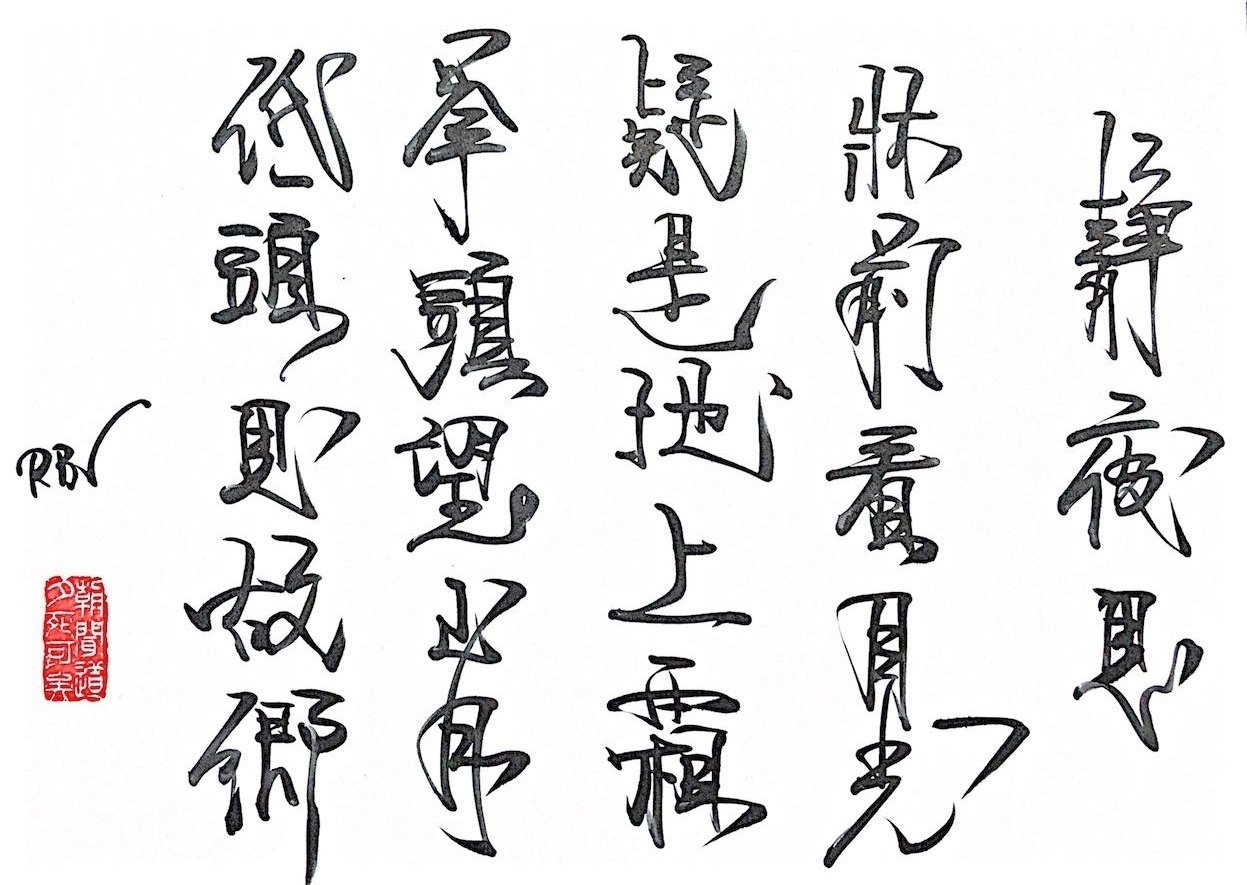 靜夜思
牀前看月光
疑是地上霜
舉頭望山月
低頭思故鄉
朝聞道
夕死可矣